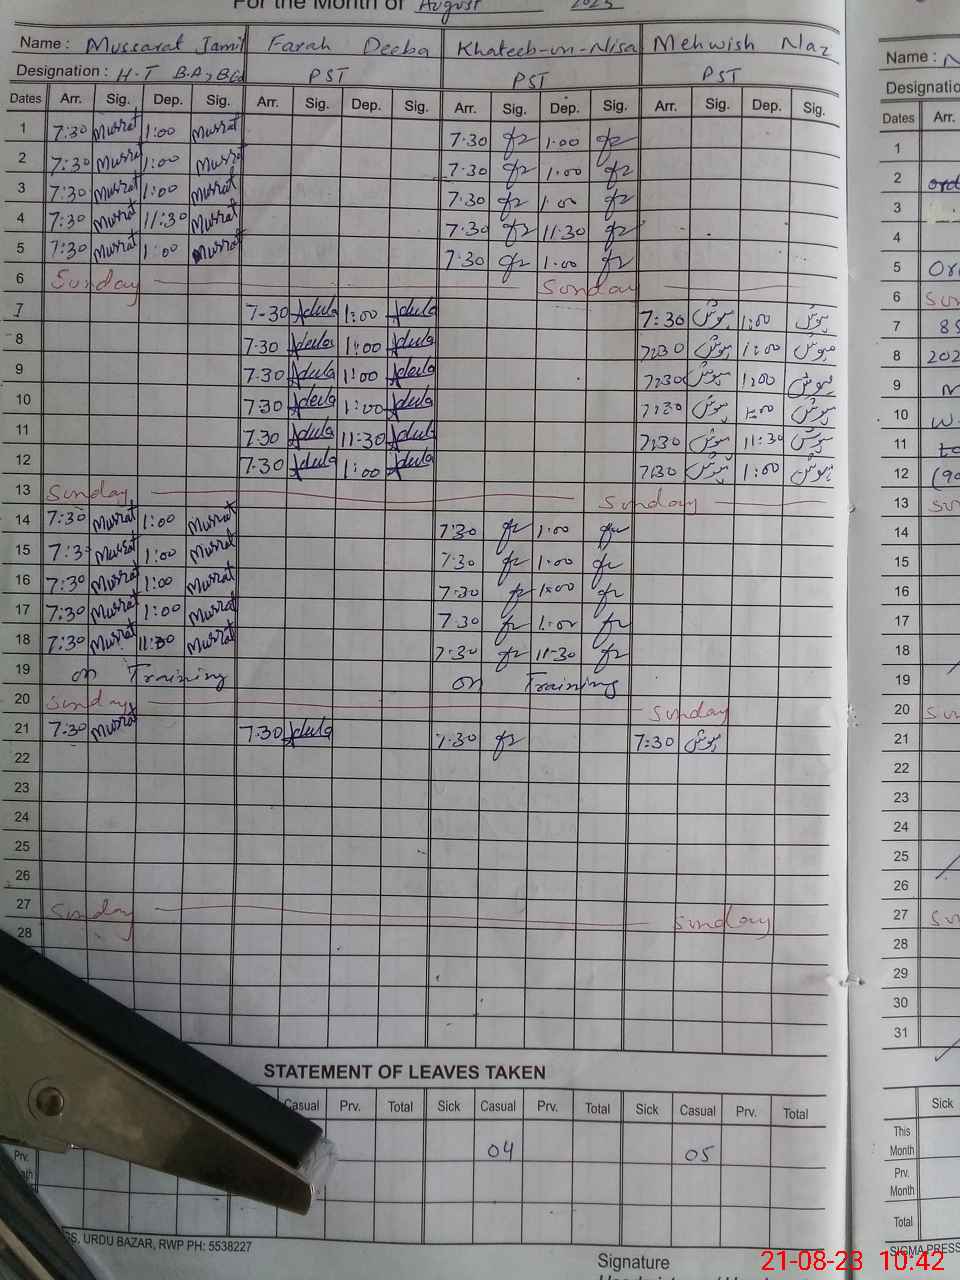 For the Month of August 2023
Name : Mussarat Jamil Farah Deeba Khateeb-un-Nisa Mehwish Naz
Designation : H-T B.A, B.Ed PST PST PST
Dates Arr. Sig. Dep. Sig. Arr. Sig. Dep. Sig. Arr. Sig. Dep. Sig. Arr. Sig. Dep. Sig.
1 7:30 Mussrat 1:00 Mussrat 7.30 1.00
2 7:30 Mussrat 1:00 Mussrat 7.30 1.00
3 7:30 Mussrat 1:00 Mussrat 7.30 1.00
4 7:30 Mussrat 11:30 Mussrat 7.30 11.30
5 7:30 Mussrat 1:00 Mussrat 7.30 1.00
6 Sunday Sunday
7 7-30 1:00 7:30 مہوش 1:00 مہوش
8 7.30 1:00 7:30 مہوش 1:00 مہوش
9 7.30 1:00 7:30 مہوش 1:00 مہوش
10 7.30 1:00 7:30 مہوش 1:00 مہوش
11 7.30 11:30 7:30 مہوش 11:30 مہوش
12 7.30 1:00 7:30 مہوش 1:00 مہوش
13 Sunday Sunday
14 7:30 Mussrat 1:00 Mussrat 7:30 1:00
15 7:30 Mussrat 1:00 Mussrat 7.30 1.00
16 7:30 Mussrat 1:00 Mussrat 7.30 1:00
17 7:30 Mussrat 1:00 Mussrat 7.30 1:00
18 7:30 Mussrat 11:30 Mussrat 7:30 11-30
19 on Training on Training
20 Sunday Sunday
21 7:30 Mussrat 7.30 7.30 7:30 مہوش
22
23
24
25
26
27 Sunday Sunday
28
STATEMENT OF LEAVES TAKEN
Casual Prv. Total Sick Casual Prv. Total Sick Casual Prv. Total
04 05
Prv.
URDU BAZAR, RWP PH: 5538227
Signature
Name :
Dates Arr.
1
2
3
4
5
6
7
8 202
9
10
11
12
13
14
15
16
17
18
19
20
21
22
23
24
25
26
27
28
29
30
31
Sick
This Month
Prv. Month
Total
SIGMA PRESS
21-08-23 10:42